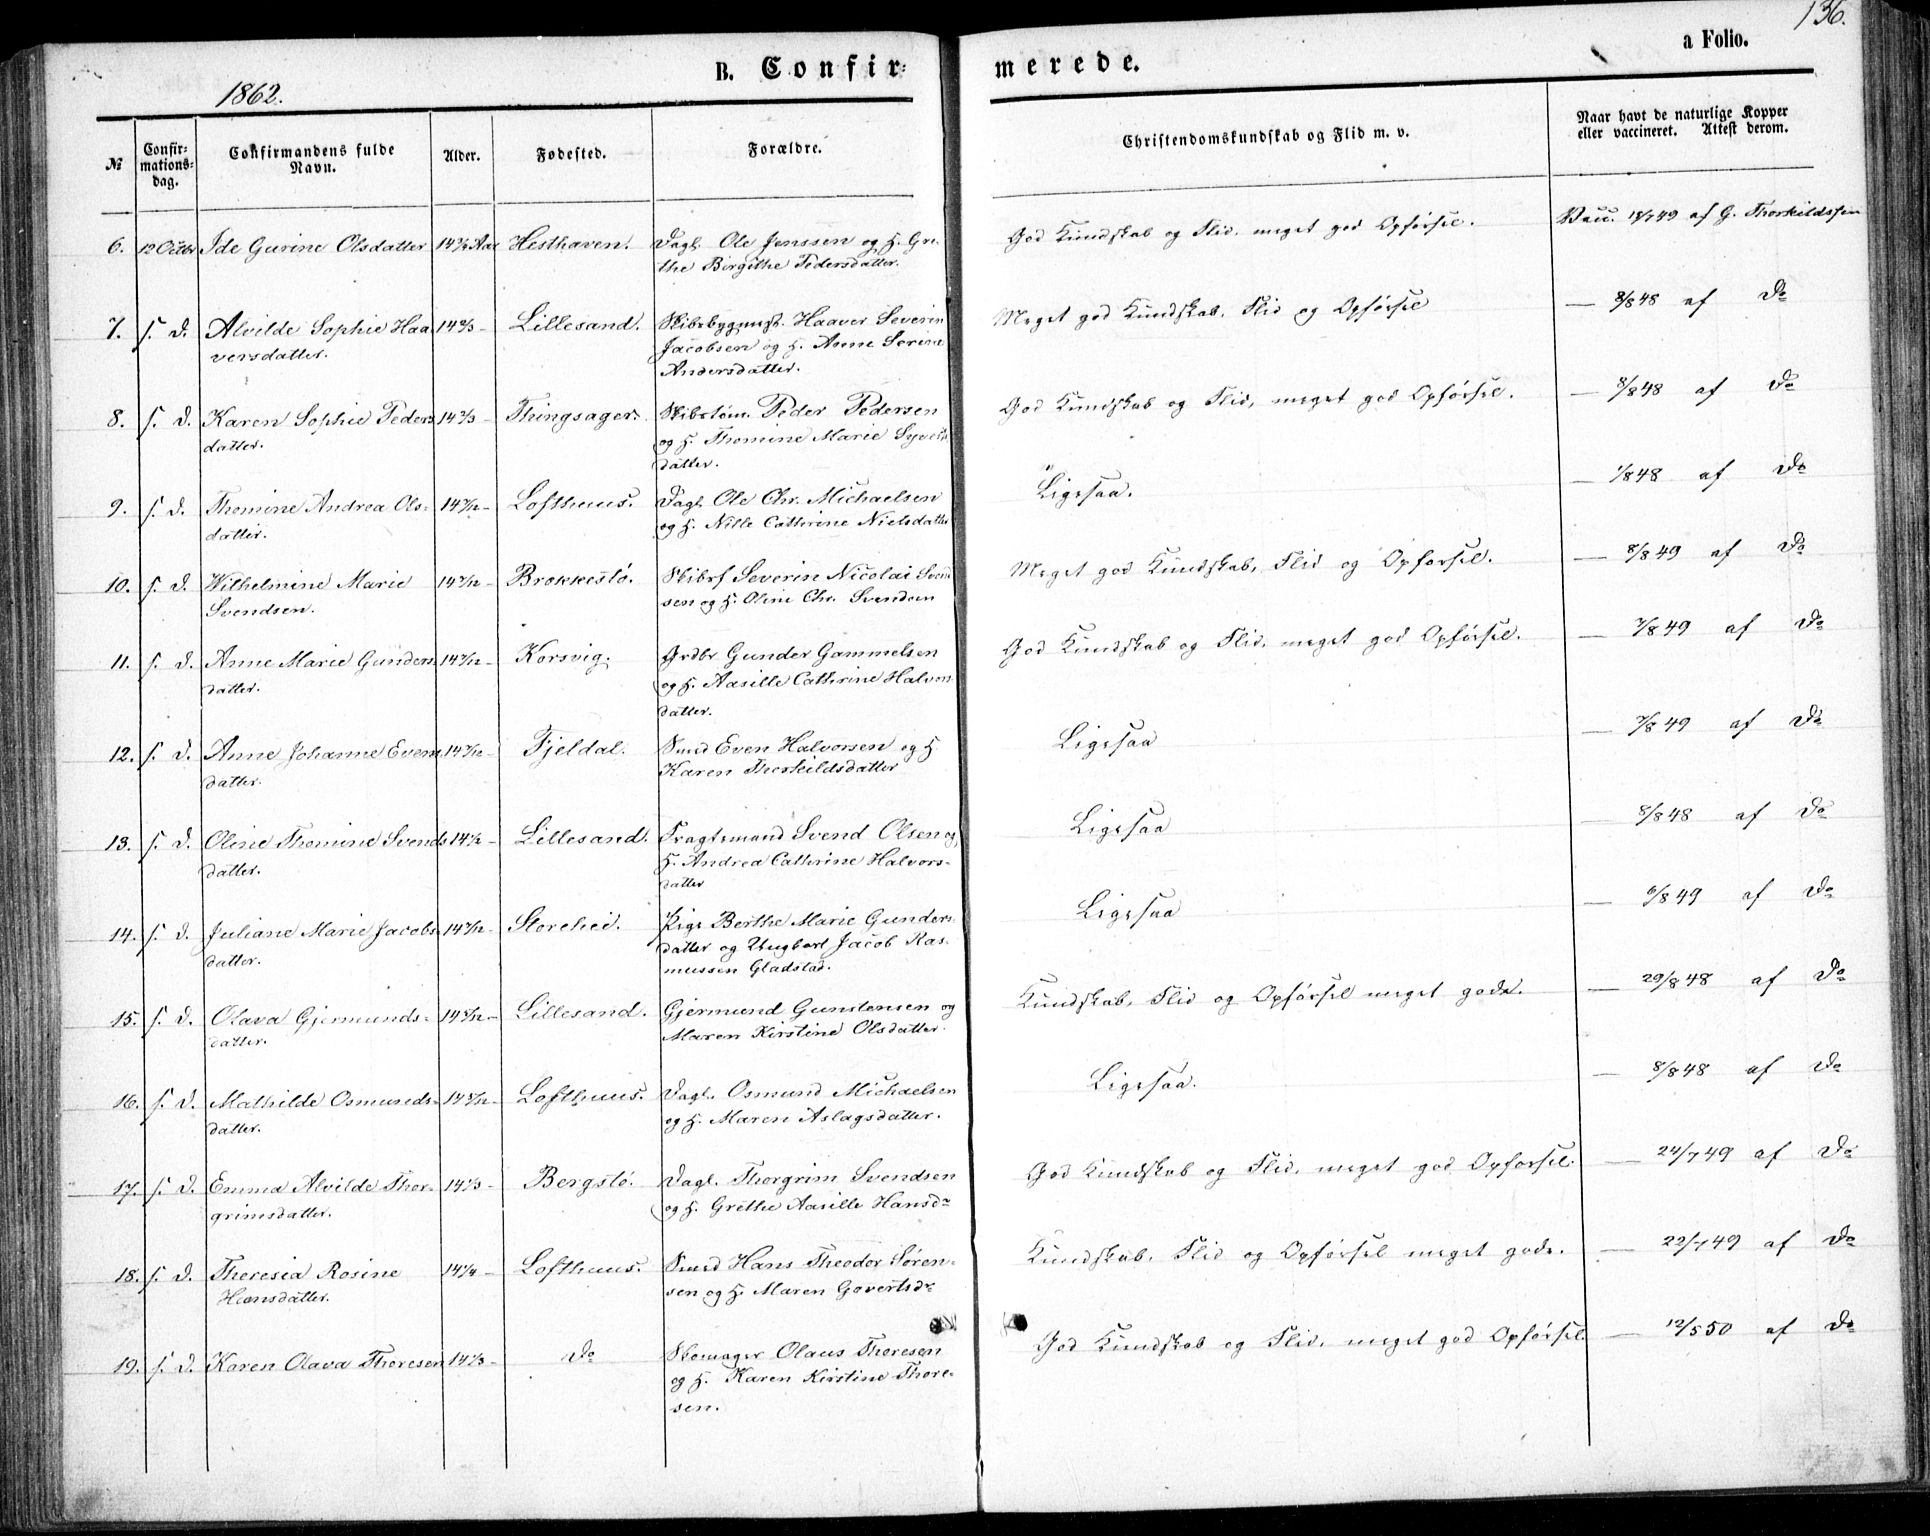 136.
B. Confir-
merede.
a Folio.
1862.
№
Confir-
mations-
dag.
Confirmandens fulde
Navn.
Alder.
Fødested.
Forældre.
Christendomskundskab og Flid m. v.
Naar havt de naturlige Kopper
eller vaccineret. Attest derom.
6. 12 Octbr Ide Gurine Olsdatter Hesthaven. Dagl. Ole Jenssen og H. Gre- God Kundskab og Flid, meget god Opførsel. Vacc. 18/7 49 af G. Thorkildssen
the Birgithe Pedersdatter.
7. s. D. Alvilde Sophie Haa 14 2/3 - Lillesand. Skibsbygmst. Haaver Severin Meget god Kundskab, Flid og Opførsel — 8/8 48 af Do
versdatter. Jacobsen og H. Anne Serine
Andersdatter.
8. s. D. Karen Sophie Peders 14 2/3 - Thingsager. Skibstøm. Peder Pedersen God Kundskab og Flid, meget god Opførsel. — 8/8 48 af Do
datter. og H. Thomine Marie
datter.
9. s. D. Thomine Andrea Ols- Lofthuus. Dagl. Ole Chr. Michaelsen Ligesaa. — 1/8 48 af Do
datter. og H. Nille Cathrine Nielsdatter
10. s. D. Wilhelmine Marie 14 7/12 - Brækkestø. Skibsf Severin Nicolai Svend Meget god Kundskab, Flid og Opførsel. — 8/8 49 af Do
Svendsen. sen og H. Oline Chr. Svendsen
11. s. D. Anne Marie Gunders 14 7/12 - Korsvig. Grdbr Gunder Gammelsen God Kundskab og Flid, meget god Opførsel. — 7/8 49 af Do
datter. og H. Aasille Cathrine Halvors
datter.
12. s. D. Anne Johanne Evens 14 7/12 - Fjeldal. Smed Even Halvorsen og H Ligesaa — 7/8 49 af Do
datter. Karen Thorkildsdatter
13. s. D. Oline Thomine Svends 14 1/2 - Lillesand. Fragtemand Svend Olsen og Ligesaa — 8/8 48 af Do
datter. H. Andrea Cathrine Halvors-
datter
14. s. D. Juliane Marie Jacobs- Storehei. Pige Berthe Marie Gunders- Ligesaa — 6/8 49 af Do
datter. datter og Ungkarl Jacob Ras-
mussen Gladstad.
15. s. D. Olava Gjermunds- 14 5/12 - Lillesand. Gjermund Gunstensen og Kundskab, Flid og Opførsel meget gode. — 29/8 48 af Do
datter. Maren Kirstine Olsdatter.
16. s. D. Mathilde Osmunds- Lofthuus. Dagl. Osmund Michaelsen Ligesaa. — 8/8 48 af Do
datter. og H. Maren Aslagsdatter.
17. s. D. Emma Alvilde Thor- 14 1/3 - Bergstø. Dagl. Thorgrim Svendsen God Kundskab og Flid, meget god Opførsel. — 24/7 49 af Do
grimsdatter. og H. Grethe Aasille Hansdr
18. s. D. Theresia Rosine 14 1/4 - Lofthuus. Smed Hans Theodor Søren- Kundskab, Flid og Opførsel meget gode. — 22/7 49 af Do
Hansdatter. sen og H. Maren Govertsdr
19. s. D. Karen Olava Thoresen 14 1/3 - Do Skomager Olaus Thoresen God Kundskab og Flid, meget god Opførsel. — 12/5 50 af Do
og H. Karen Kirstine Thore-
sen.